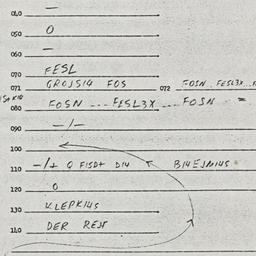 040 —
050 0
060 —
070 FESL
071 GROJSI4 FOS 072 FOSN .. FESL3X ..
080 FOSN --- FESL3X .... FOSN =
090 —/—
100
110 —/+ 0 FISD+ DI4 BI4EJNI4S
120 0
130 KLEPKI4S
140 DER REST